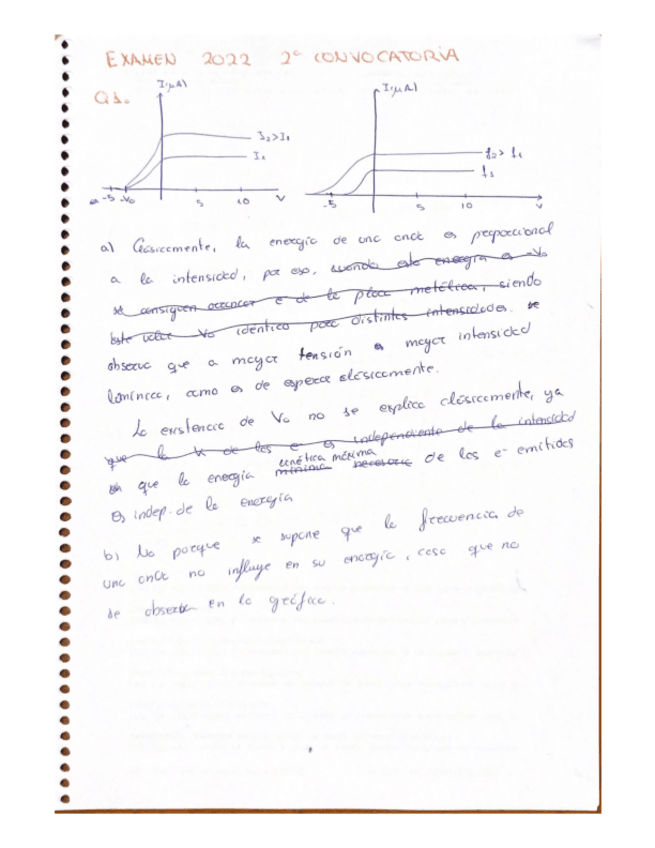 EXAMEN 2022 2ª CONVOCATORIA
Q1.
I(μA)
I₂>I₁
I₁
-5 -V₀ 5 10 V
I(μA)
f₂>f₁
f₁
-5 5 10 V
a) Clásicamente, la energía de una onda es proporcional
a la intensidad, por eso, cuando esta energía es -V₀
se consiguen arrancar e⁻ de la placa metálica, siendo
este valor V₀ idéntico para distintas intensidades. se
observa que a mayor tensión es mayor intensidad
lumínica, como es de esperar clásicamente.
La existencia de V₀ no se explica clásicamente, ya
que la K de los e⁻ es independiente de la intensidad
cinética máxima
que la energía mínima necesaria de los e⁻ emitidos
es indep. de la energía
b) No porque se supone que la frecuencia de
una onda no influye en su energía, cosa que no
se observa en la gráfica.